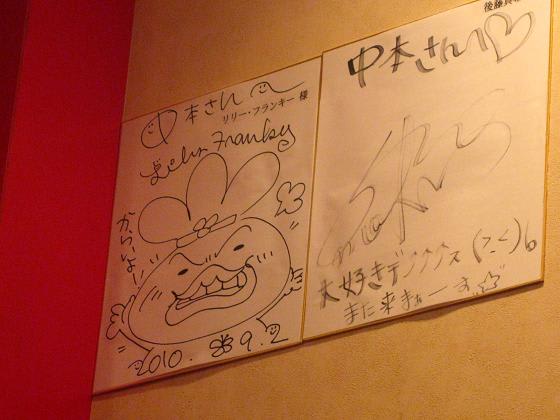 中本さん
リリー・フランキー 様
Lily Franky
からいよー!!
2010. 9. 2
後藤真希
中本さんへ♡
大好きデス
また来まぁーす